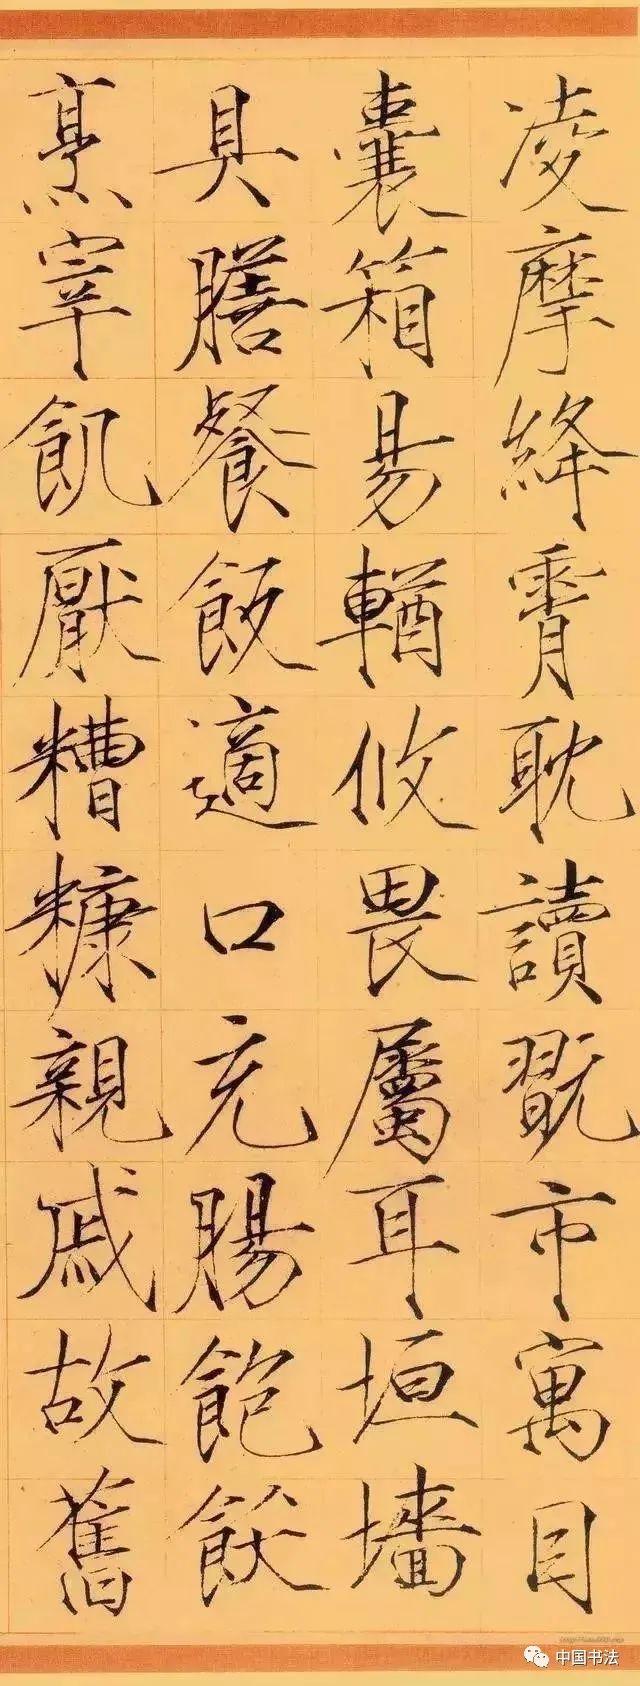 凌摩絳霄耽讀翫市寓目
囊箱易輶攸畏屬耳垣墻
具膳餐飯適口充腸飽飫
烹宰飢厭糟糠親戚故舊
中国书法